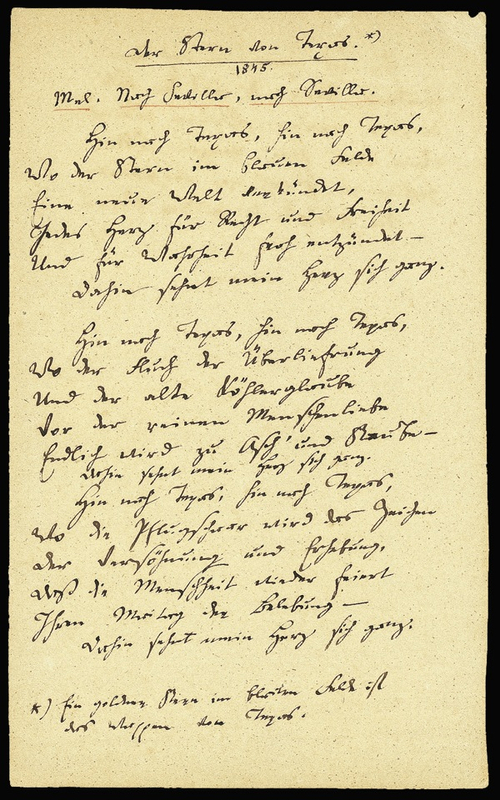 Der Stern von Texas.*)
1845.
Mel. Nach Sevilla, nach Sevilla.
Hin nach Texas, hin nach Texas,
Wo der Stern im blauen Felde
Eine neue Welt verkündet,
Jedes Herz für Recht und Freiheit
Und für Wahrheit froh entzündet —
Dahin sehnt mein Herz sich ganz.
Hin nach Texas, hin nach Texas,
Wo der Fluch der Überliefrung
Und der alte Köhlerglaube
Vor der reinen Menschenliebe
Endlich wird zu Asch' und Staube —
Dahin sehnt mein Herz sich ganz.
Hin nach Texas, hin nach Texas,
Wo die Pflugschaar wird das Zeichen
Der Versöhnung und Erhebung,
Daß die Menschheit wieder feiert
Ihren Maitag der Belebung —
Dahin sehnt mein Herz sich ganz.
*) Ein goldner Stern im blauen Felde ist
das Wappen von Texas.